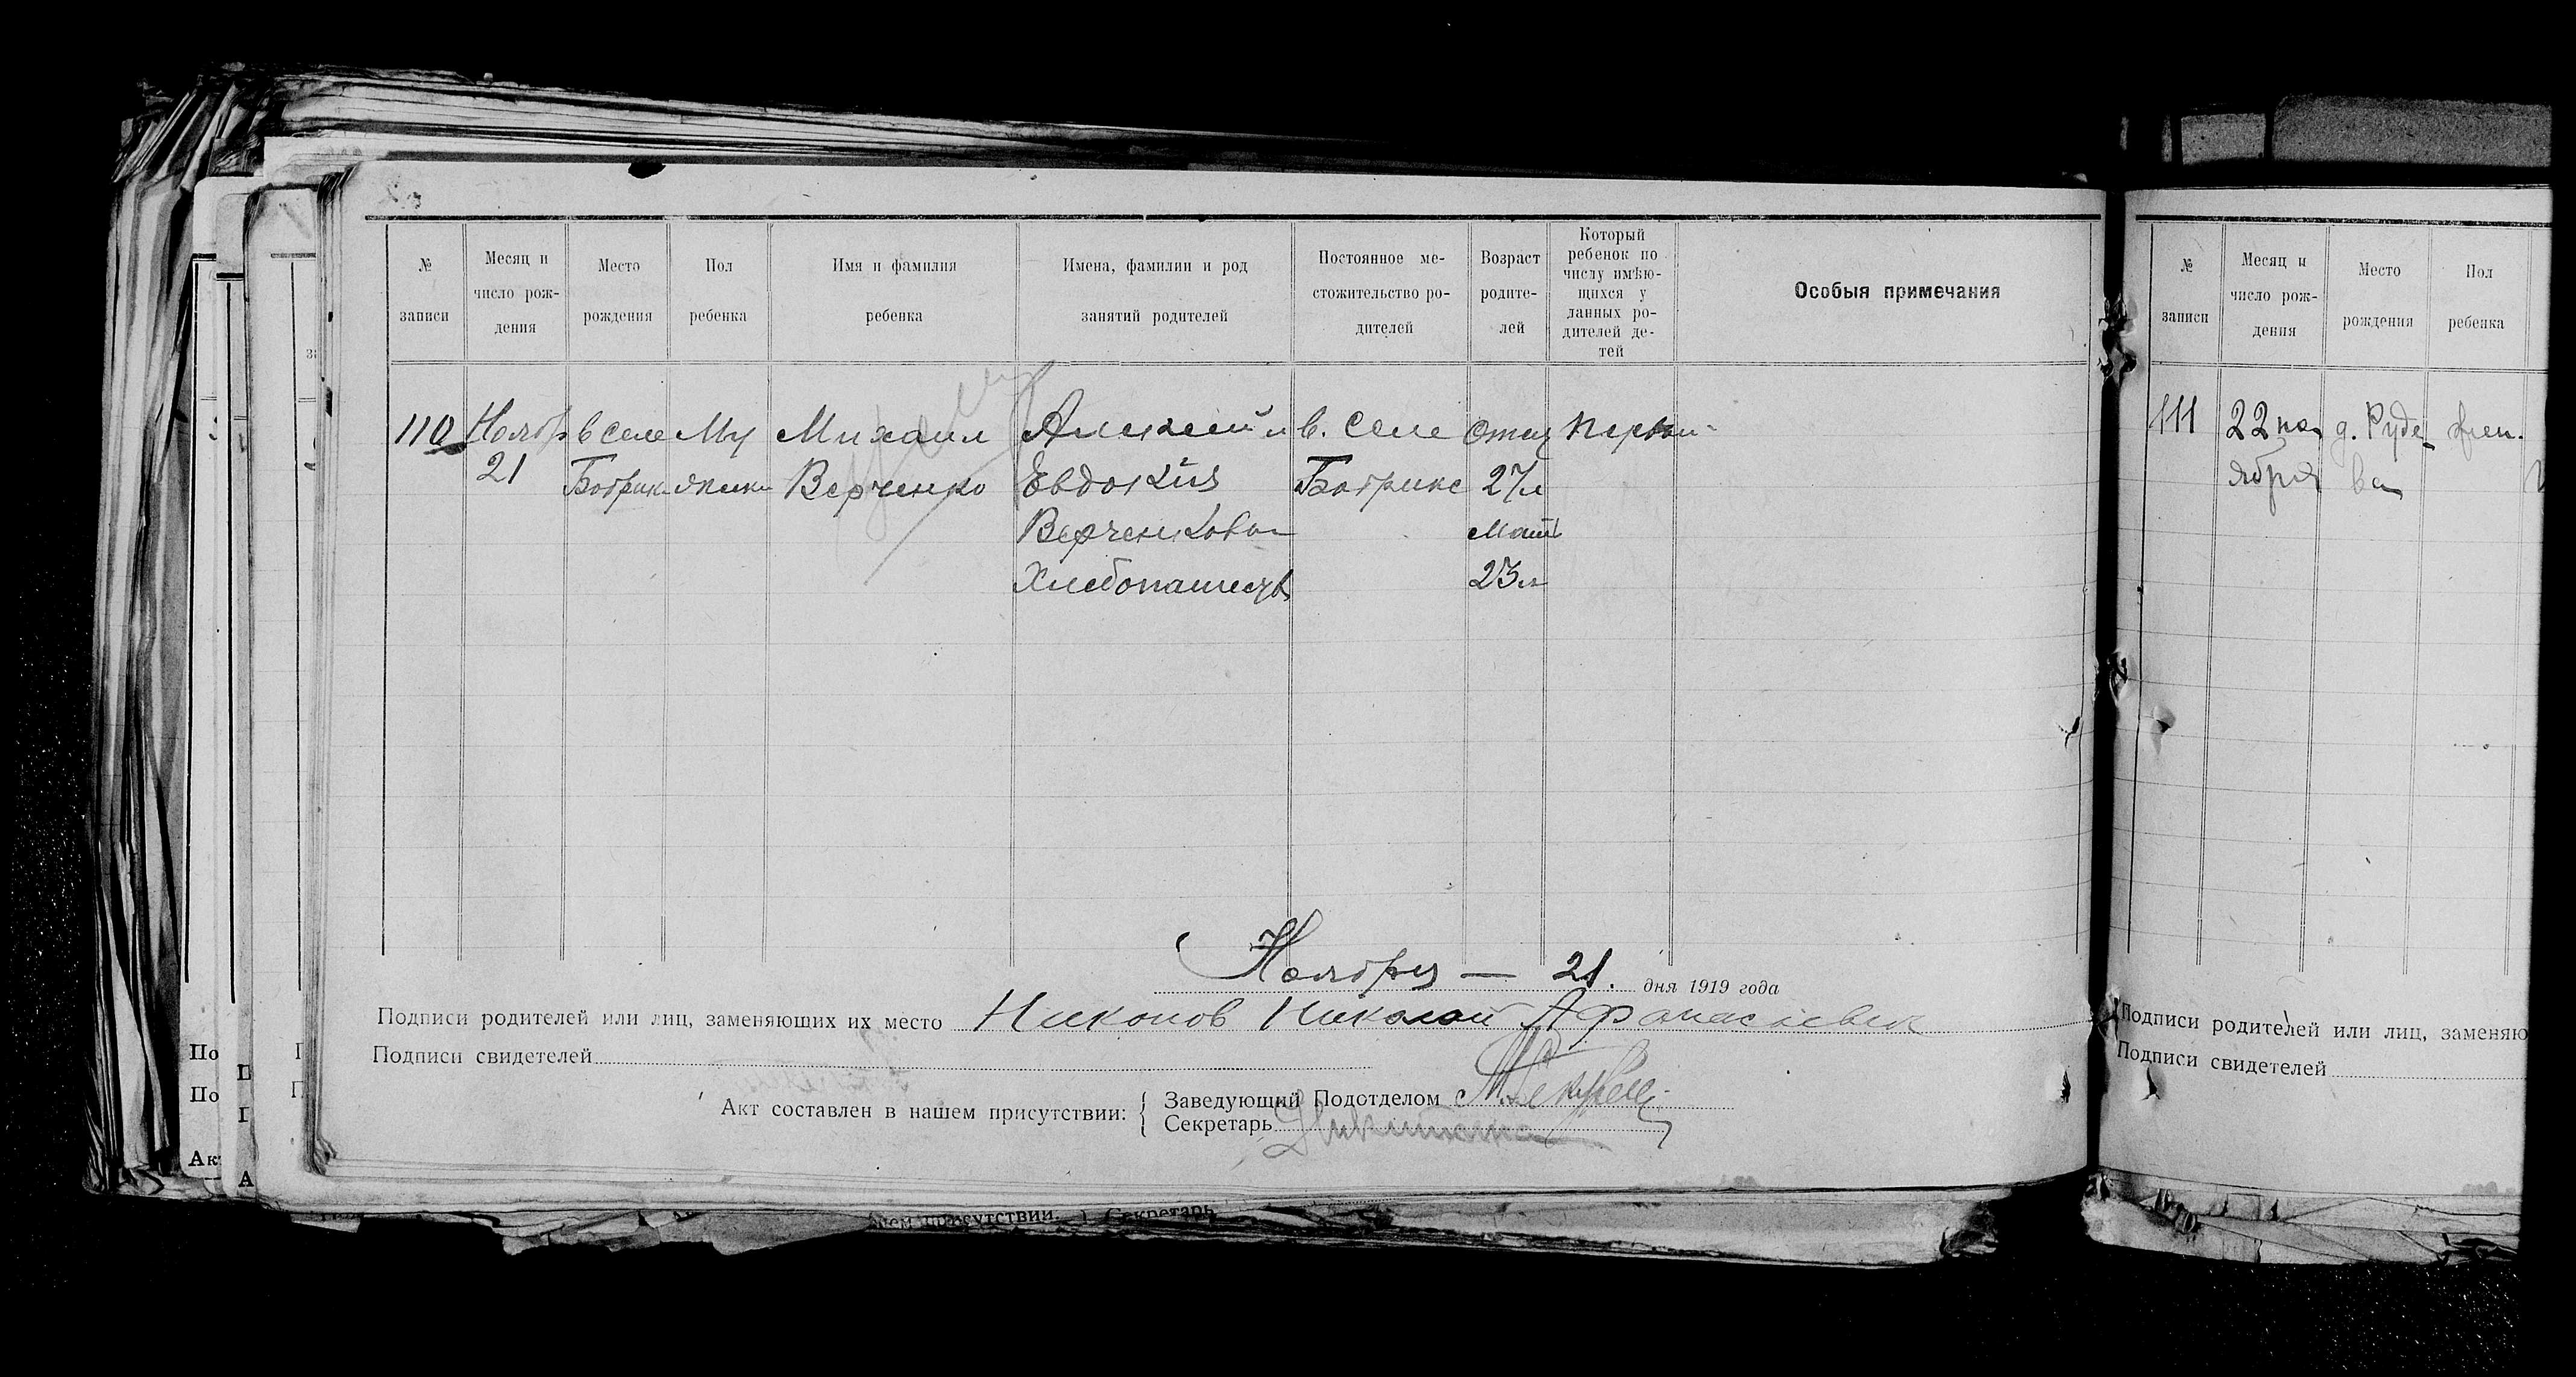 № записи
Месяц и число рож-дения
Место рождения
Пол ребенка
Имя и фамилия ребенка
Имена, фамилии и род занятий родителей
Постоянное ме-стожительство ро-дителей
Возраст родите-лей
Который ребенок по числу имѣю-щихся у данных ро-дителей де-тей
Особыя примечания
110 Ноябр в селе Му Михаил Алексей и в. Селе Отец Первы-
21 Ботрик жски Верченко Евдокия Ботрике 27 л
Верченковы Мать
Хлебопашецъ 23 л
Ноября — 21. дня 1919 года
Подписи родителей или лиц, заменяющих их место Никонов Николай Афанасьевич
Подписи свидетелей
Акт составлен в нашем присутствии:
Заведующий Подотделом
Секретарь Никитина
№ записи
Месяц и число рож-дения
Место рождения
Пол ребенка
111 22 но д. Руде жен.
ября ва
Подписи родителей или лиц, заменяю
Подписи свидетелей
По
По
Ак
П
Г
А
нем присутствии. Секретарь